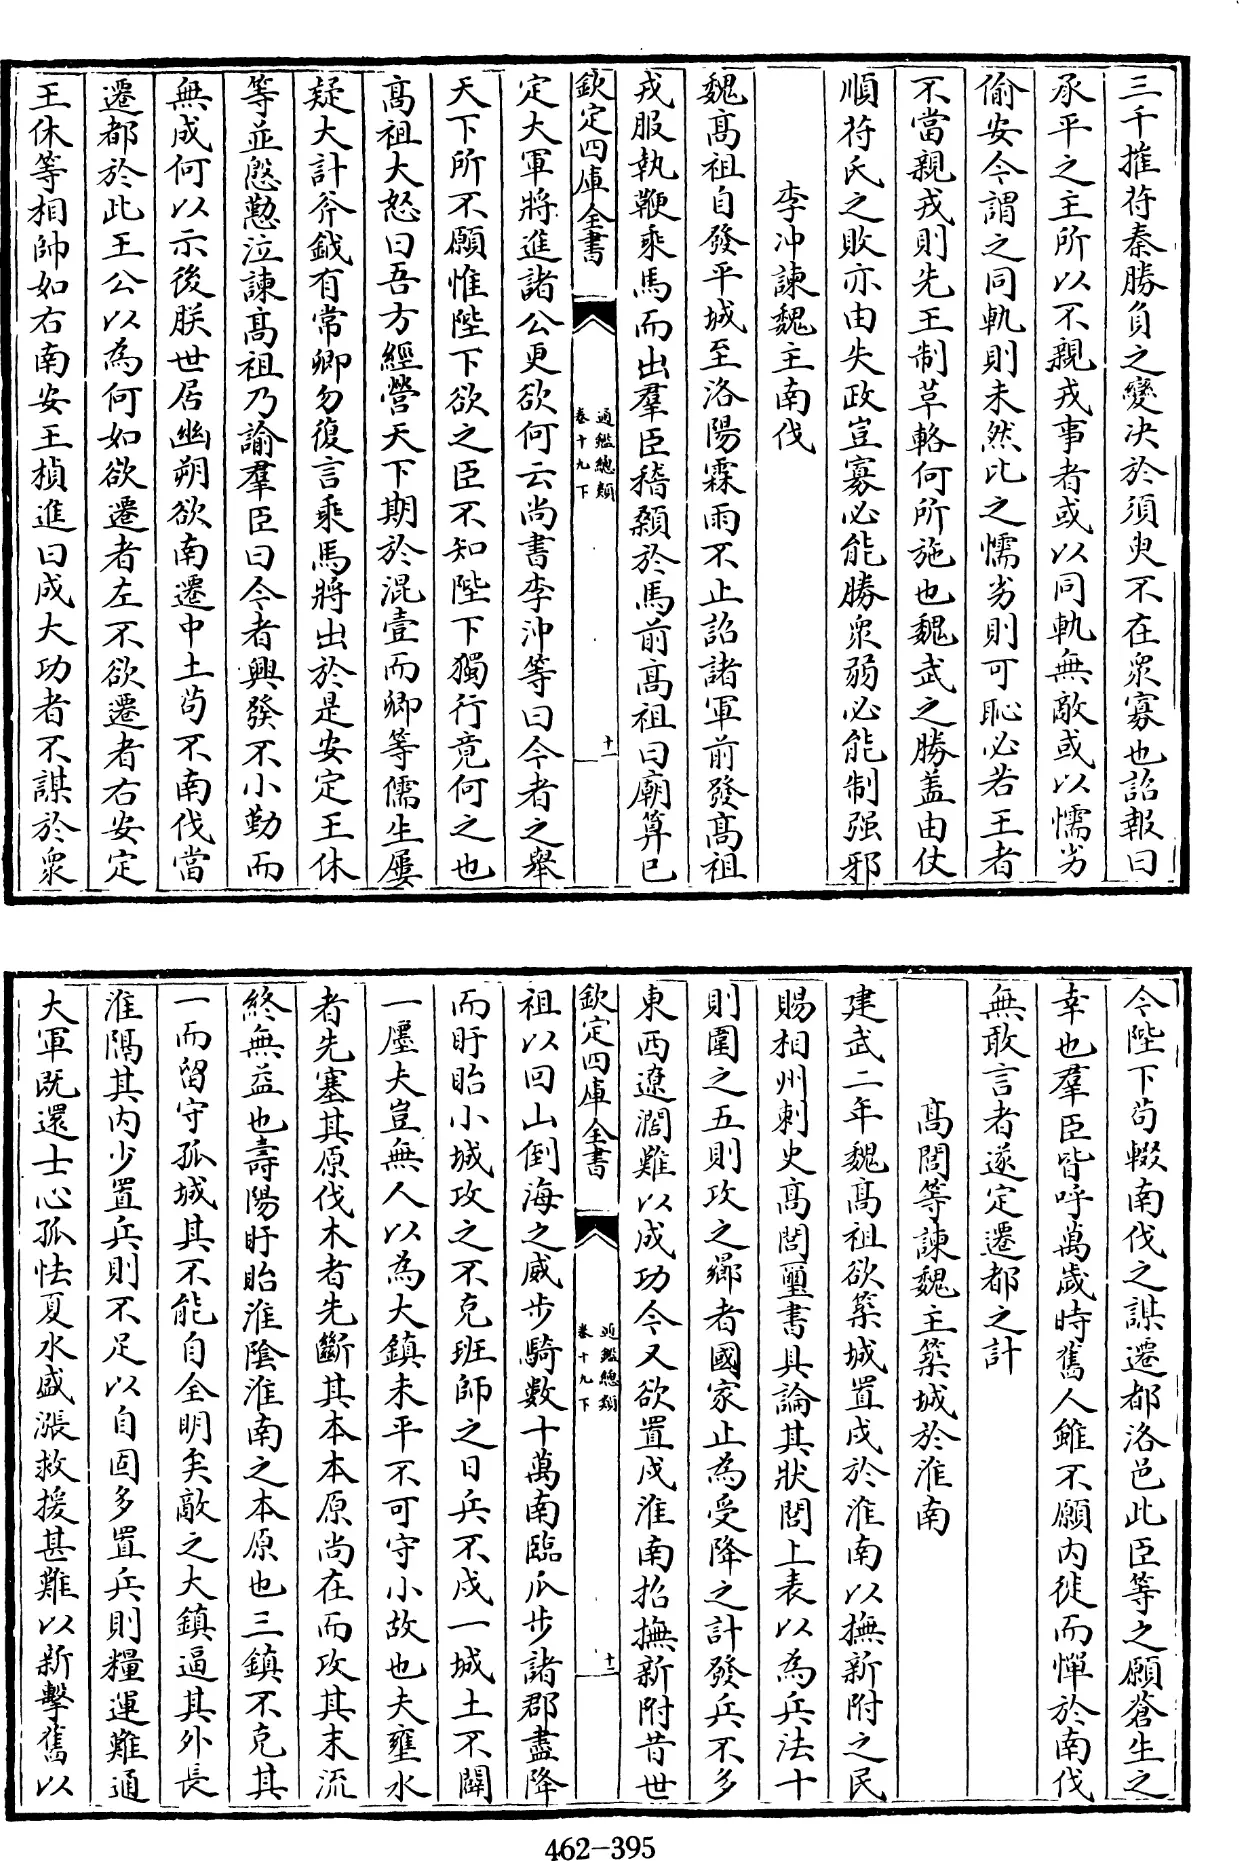 三千摧苻秦勝負之變决於須臾不在衆寡也詔報曰
承平之主所以不親戎事者或以同軌無敵或以懦劣
偷安今謂之同軌則未然比之懦劣則可恥必若王者
不當親戎則先王制革輅何所施也魏武之勝盖由仗
順苻氏之敗亦由失政豈寡必能勝衆弱必能制强邪
李冲諫魏主南伐
魏髙祖自發平城至洛陽霖雨不止詔諸軍前發髙祖
戎服執鞭乘馬而出羣臣稽顙於馬前髙祖曰廟算已
欽定四庫全書
通鑑總類
卷十九下
十一
定大軍將進諸公更欲何云尚書李沖等曰今者之舉
天下所不願惟陛下欲之臣不知陛下獨行竟何之也
髙祖大怒曰吾方經營天下期於混壹而卿等儒生屢
疑大計斧鉞有常卿勿復言乘馬將出於是安定王休
等並慇懃泣諫髙祖乃諭羣臣曰今者興發不小動而
無成何以示後朕世居幽朔欲南遷中土苟不南伐當
遷都於此王公以為何如欲遷者左不欲遷者右安定
王休等相帥如右南安王楨進曰成大功者不謀於衆
今陛下苟輟南伐之謀遷都洛邑此臣等之願蒼生之
幸也羣臣皆呼萬歲時舊人雖不願内徙而憚於南伐
無敢言者遂定遷都之計
髙閭等諫魏主築城於淮南
建武二年魏髙祖欲築城置戍於淮南以撫新附之民
賜相州刺史髙閭璽書具論其狀閭上表以為兵法十
則圍之五則攻之曏者國家止為受降之計發兵不多
東西遼濶難以成功今又欲置戍淮南招撫新附昔世
欽定四庫全書
通鑑總類
卷十九下
十二
祖以回山倒海之威步騎數十萬南臨瓜步諸郡盡降
而盱眙小城攻之不克班師之日兵不戍一城土不闢
一廛夫豈無人以為大鎮未平不可守小故也夫壅水
者先塞其原伐木者先斷其本本原尚在而攻其末流
終無益也壽陽盱眙淮陰淮南之本原也三鎮不克其
一而留守孤城其不能自全明矣敵之大鎮逼其外長
淮隔其内少置兵則不足以自固多置兵則糧運難通
大軍既還士心孤怯夏水盛漲救援甚難以新擊舊以
462-395